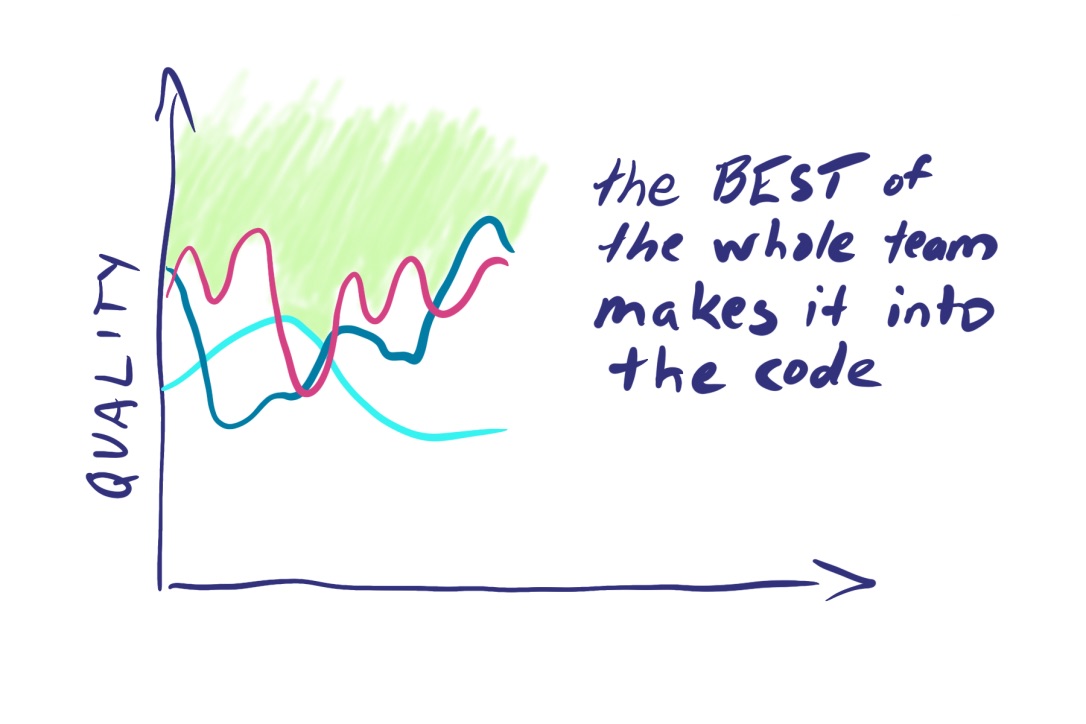 QUALITY
the BEST of
the whole team
makes it into
the code